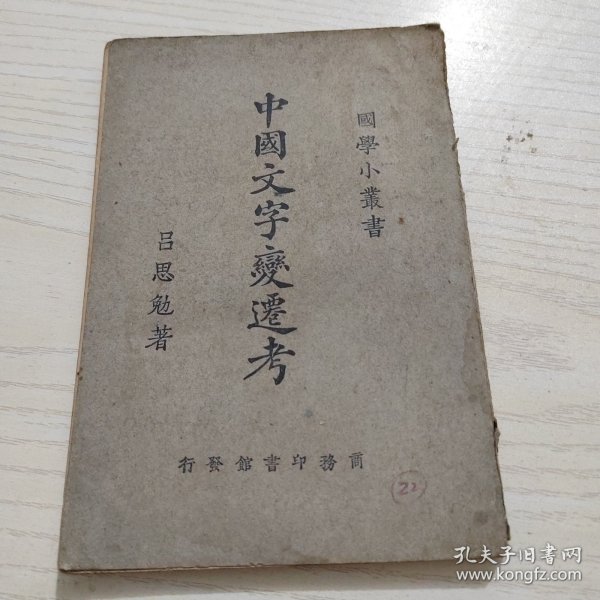 國學小叢書
中國文字變遷考
吕思勉著
商務印書館發行
22
孔夫子旧书网
www.kongfz.com